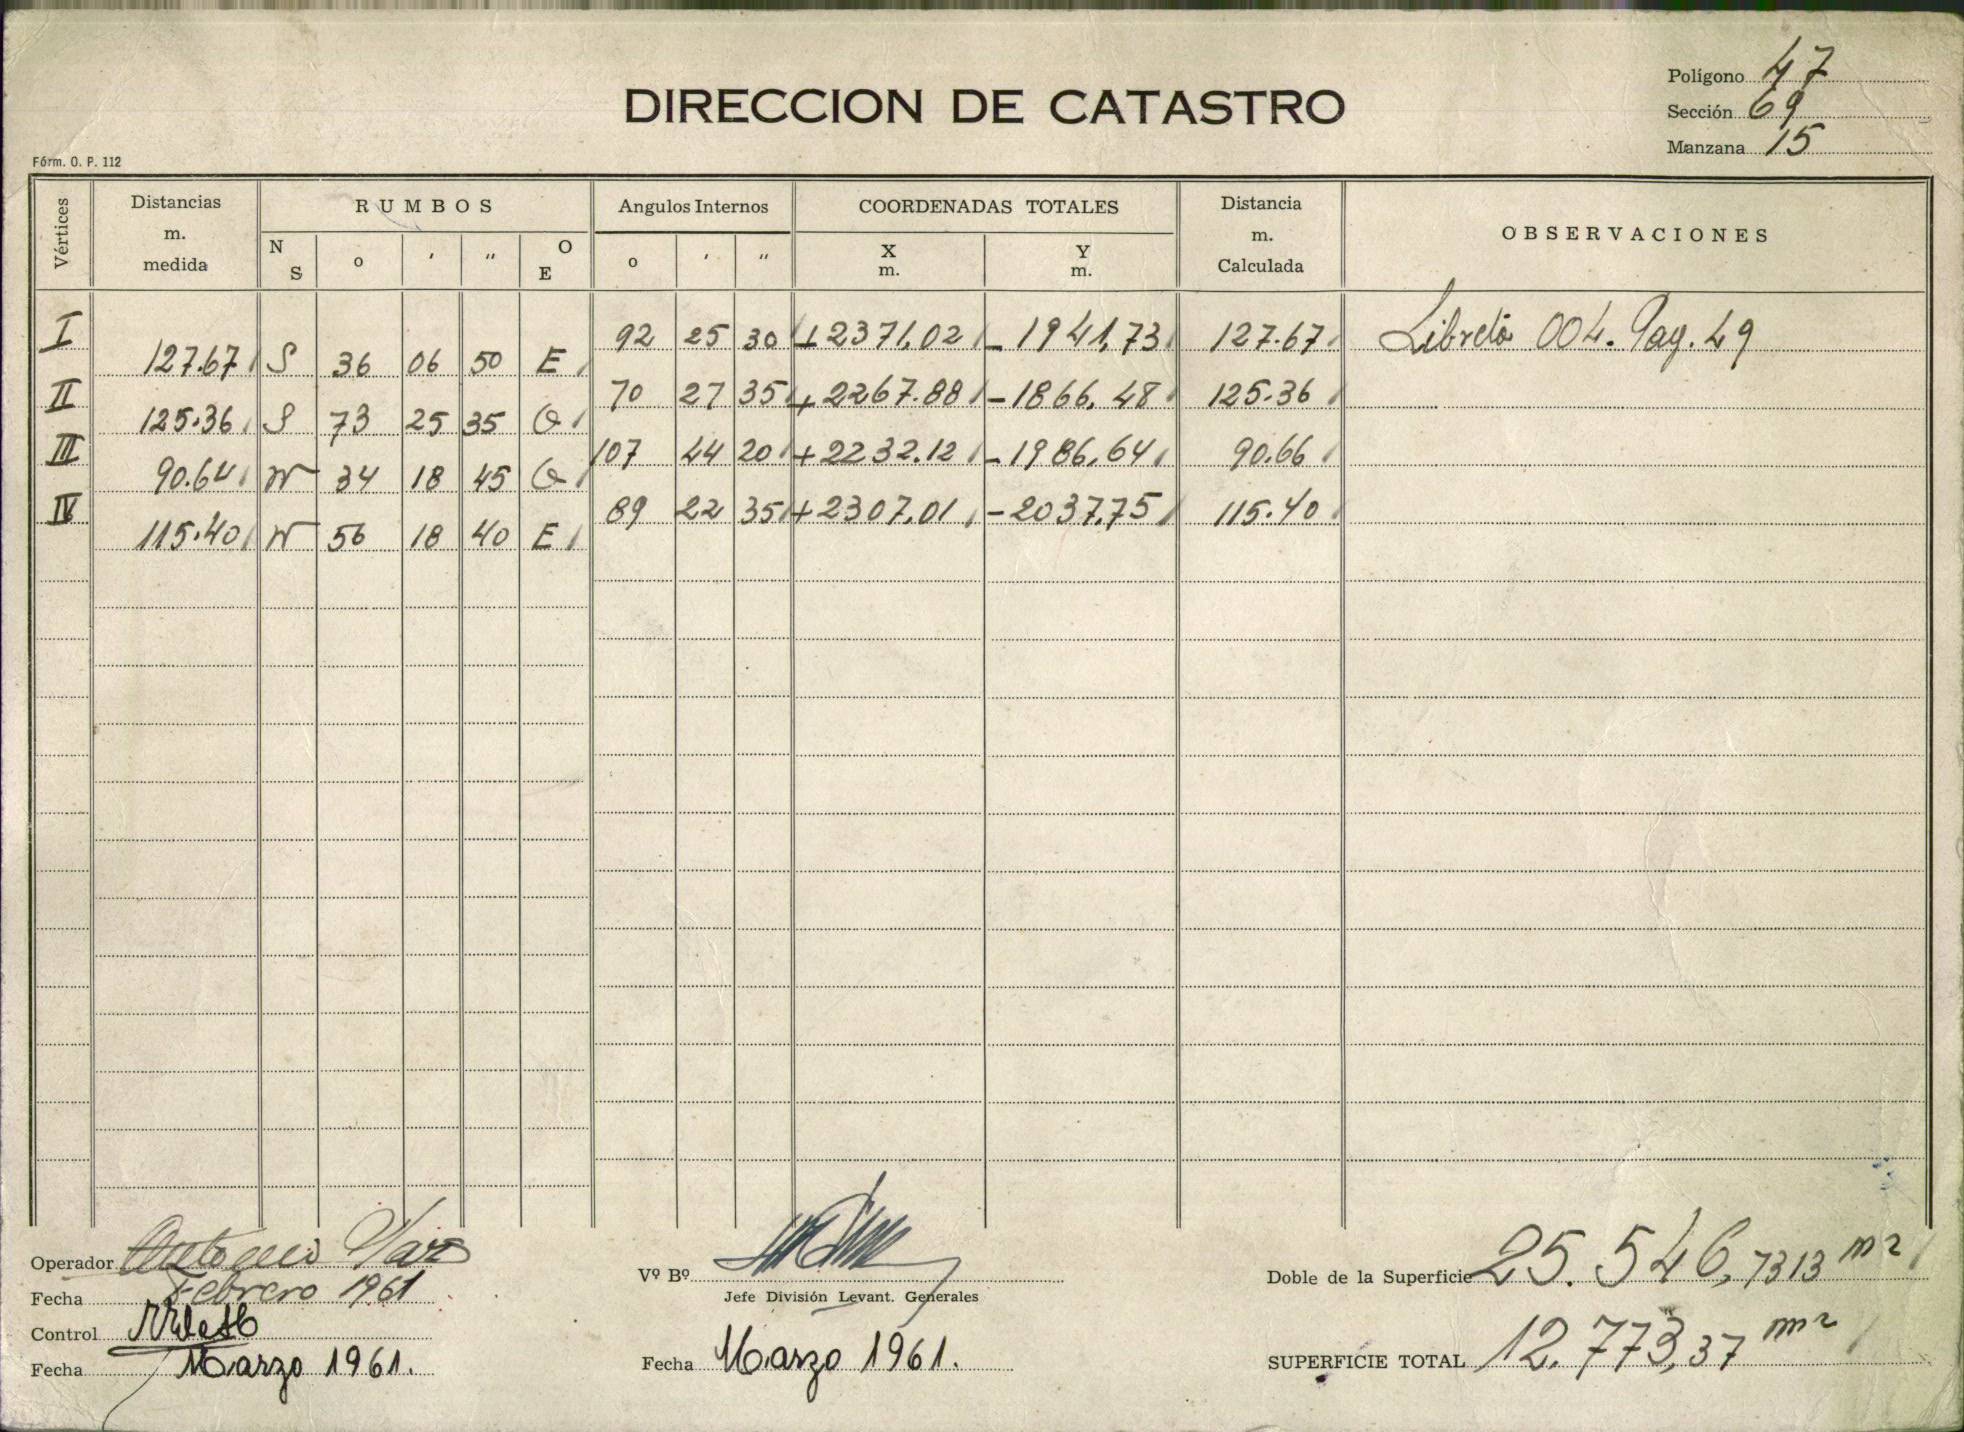 Polígono 47
DIRECCION DE CATASTRO
Sección 69
Manzana 15
Fórm. O. P. 112
Vértices
Distancias m. medida
RUMBOS
Angulos Internos
COORDENADAS TOTALES
Distancia m. Calculada
OBSERVACIONES
N S o ' " O E o ' " X m. Y m.
I 92 25 30 +2371,02 -1941,73 127.67 Libreta 004. Pag. 49
127.67 S 36 06 50 E
II 70 27 35 +2267.88 -1866,48 125.36
125.36 S 73 25 35 O
III 107 44 20 +2232.12 -1986,64 90.66
90.64 N 34 18 45 O
IV 89 22 35 +2307,01 -2037,75 115.40
115.40 N 56 18 40 E
Operador Antonio
Fecha Febrero 1961
Control
Fecha Marzo 1961.
Vº Bº
Jefe División Levant. Generales
Fecha Marzo 1961.
Doble de la Superficie 25.546,7313 m2
SUPERFICIE TOTAL 12.773,37 m2